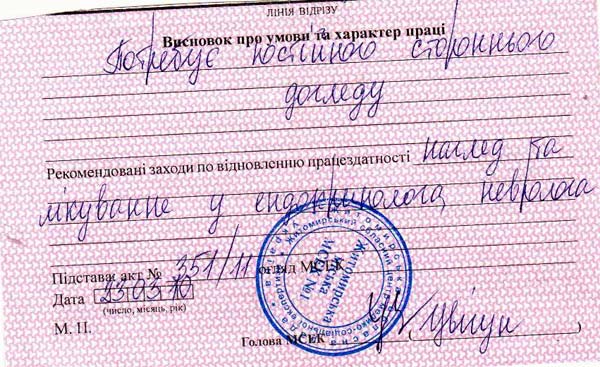 ЛІНІЯ ВІДРІЗУ
Висновок про умови та характер праці
Потребує постійного стороннього
догляду
Рекомендовані заходи по відновленню працездатності нагляд та
лікування у ендокринолога, невролога
Підстава: акт № 351/11 огляд МСЕК
Дата 23 03 10
(число, місяць, рік)
М. П.
Голова МСЕК
Житомирська
міська
МСЕК №1